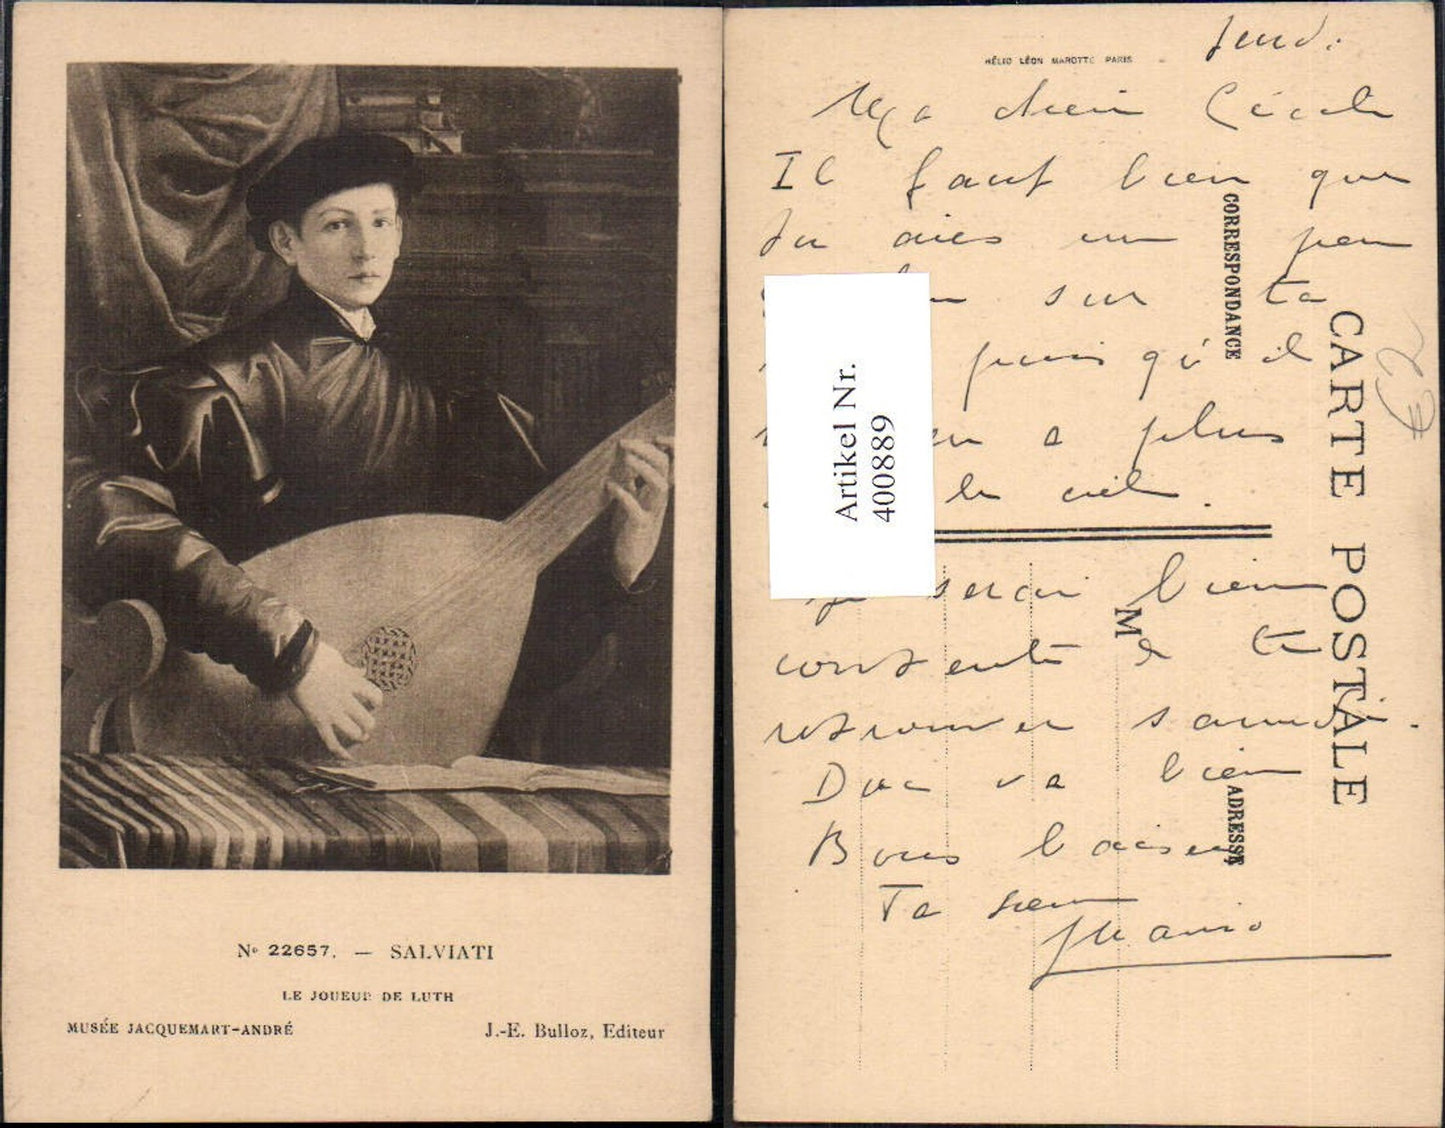 Nº 22657. — SALVIATI
LE JOUEUR DE LUTH
MUSÉE JACQUEMART-ANDRÉ
J.-E. Bulloz, Editeur
HÉLIO LÉON MAROTTE PARIS
CARTE POSTALE
CORRESPONDANCE
ADRESSE
M
Artikel Nr.
400889
Jeudi.
Ma chère Cécile
Il faut bien que
tu aies un peu
sur ta
puis qu'il
a plus
le ciel.
Je serai bien
contente de te
retrouver samedi.
va bien
Bons baisers
Ta sœur